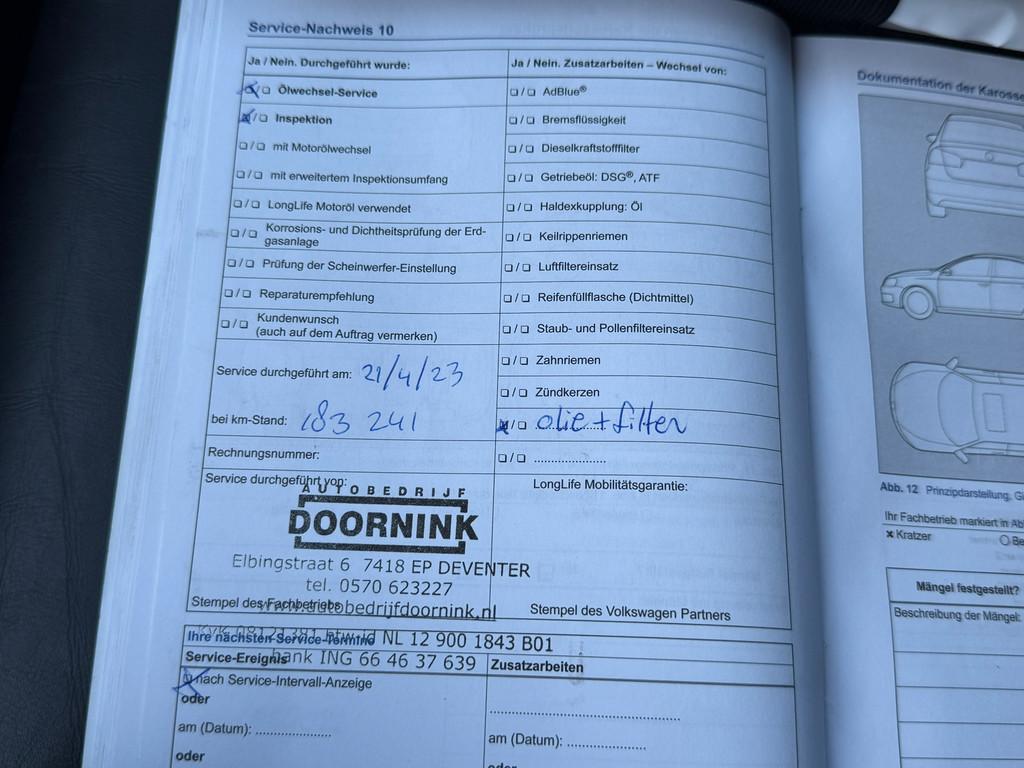 Service-Nachweis 10
Ja / Nein. Durchgeführt wurde:
❏/❏ Ölwechsel-Service
❏/❏ Inspektion
❏/❏ mit Motorölwechsel
❏/❏ mit erweitertem Inspektionsumfang
❏/❏ LongLife Motoröl verwendet
❏/❏ Korrosions- und Dichtheitsprüfung der Erd-
gasanlage
❏/❏ Prüfung der Scheinwerfer-Einstellung
❏/❏ Reparaturempfehlung
❏/❏ Kundenwunsch
(auch auf dem Auftrag vermerken)
Service durchgeführt am: 21/4/23
bei km-Stand: 183 241
Rechnungsnummer:
Service durchgeführt von:
AUTOBEDRIJF
DOORNINK
Elbingstraat 6 7418 EP DEVENTER
tel. 0570 623227
www.autobedrijfdoornink.nl
Stempel des Fachbetriebs
Ja / Nein. Zusatzarbeiten – Wechsel von:
❏/❏ AdBlue®
❏/❏ Bremsflüssigkeit
❏/❏ Dieselkraftstofffilter
❏/❏ Getriebeöl: DSG®, ATF
❏/❏ Haldexkupplung: Öl
❏/❏ Keilrippenriemen
❏/❏ Luftfiltereinsatz
❏/❏ Reifenfüllflasche (Dichtmittel)
❏/❏ Staub- und Pollenfiltereinsatz
❏/❏ Zahnriemen
❏/❏ Zündkerzen
❏/❏ olie + filter
❏/❏ .....................
LongLife Mobilitätsgarantie:
Stempel des Volkswagen Partners
Ihre nächsten Service-Termine
NL 12 900 1843 B01
bank ING 66 46 37 639
Service-Ereignis
❏ nach Service-Intervall-Anzeige
oder
am (Datum): .....................
oder
Zusatzarbeiten
.....................
am (Datum): .....................
oder
Dokumentation der
Abb. 12 Prinzipdarstellung.
Ihr Fachbetrieb markiert in
× Kratzer
Mängel festgestellt?
Beschreibung der Mängel: